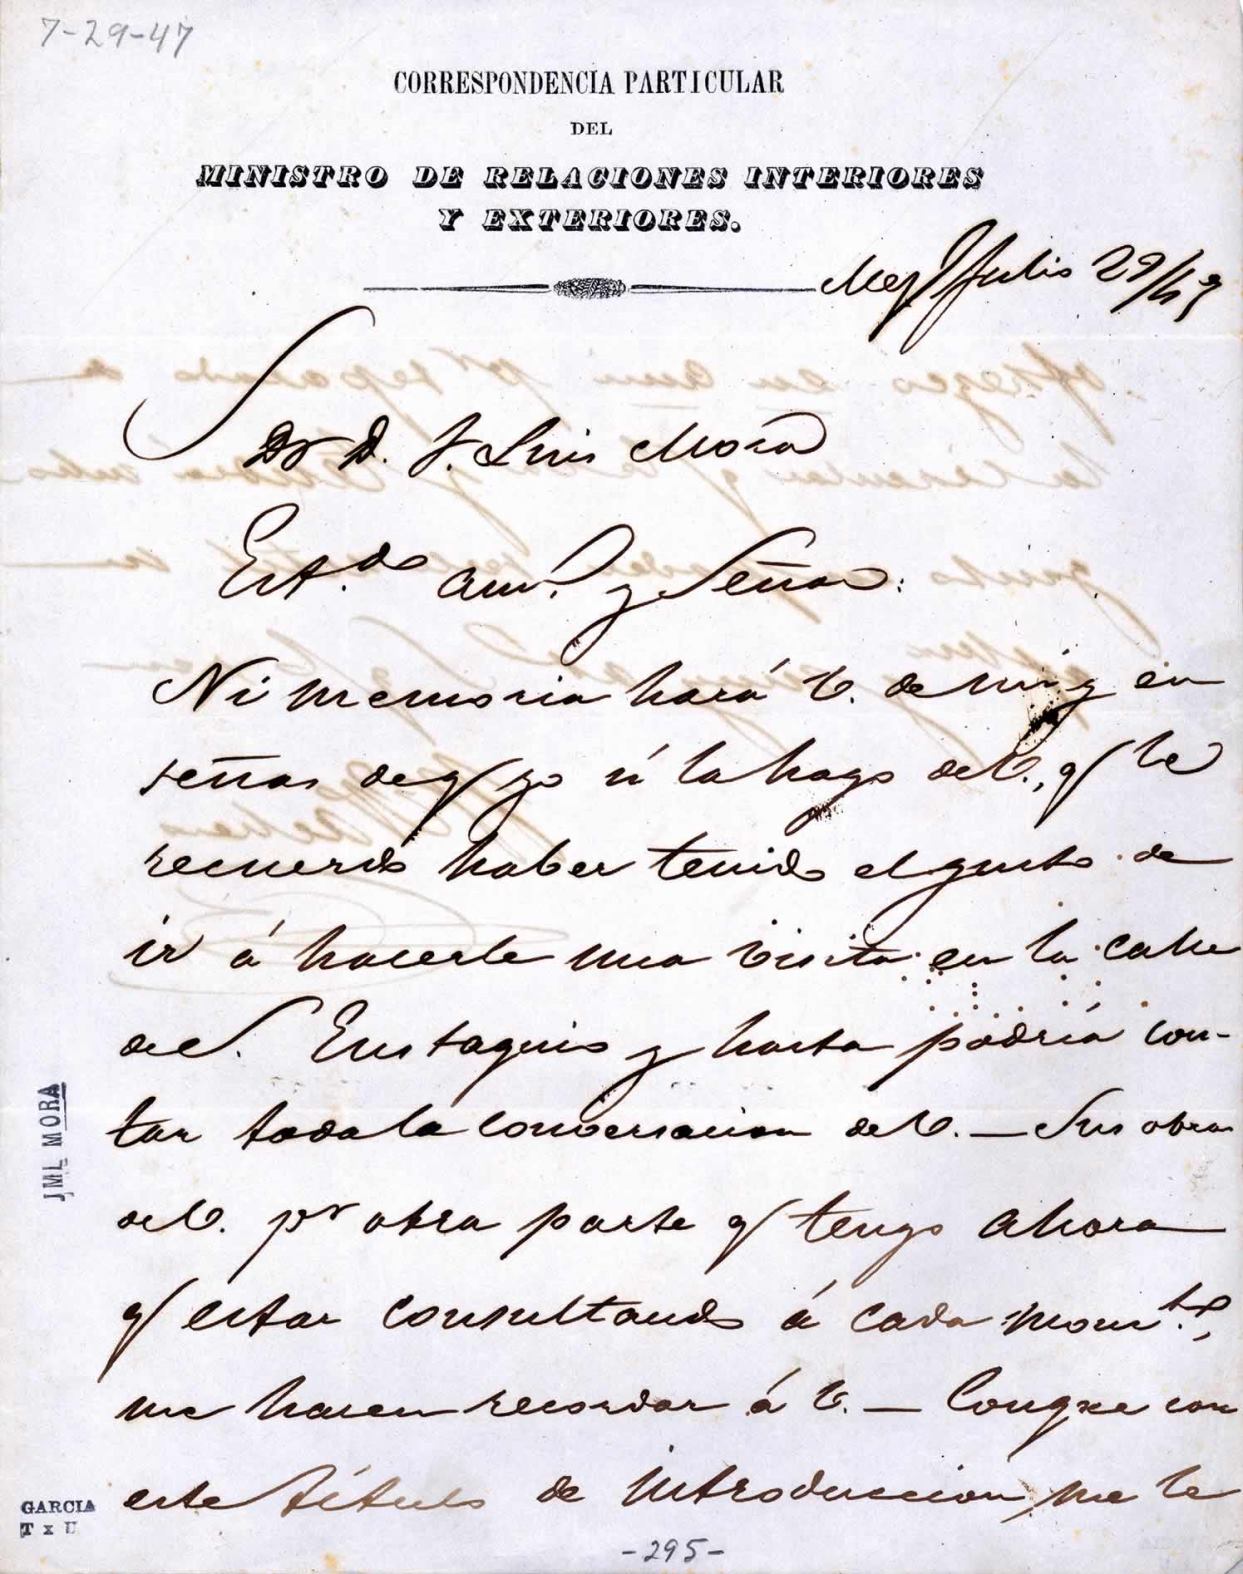 7-29-47
CORRESPONDENCIA PARTICULAR
DEL
MINISTRO DE RELACIONES INTERIORES
Y EXTERIORES.
Mex.º Julio 29/47
S
Dr D. J. Luis Mora
Est.do am.º y Señor:
Ni memoria hará V. de mí, y en
señas de q yo sí la hago de V., q le
recuerdo haber tenido el gusto de
ir á hacerle una visita en la calle
de S. Eustaquio y hasta podría con-
tar toda la conversacion de V. — Sus obras
de V. pr otra parte q tengo ahora
q estar consultando á cada mom.to,
me hacen recordar á V. — Conq.e con
este título de introduccion, me le
JML MORA
GARCIA
-295-